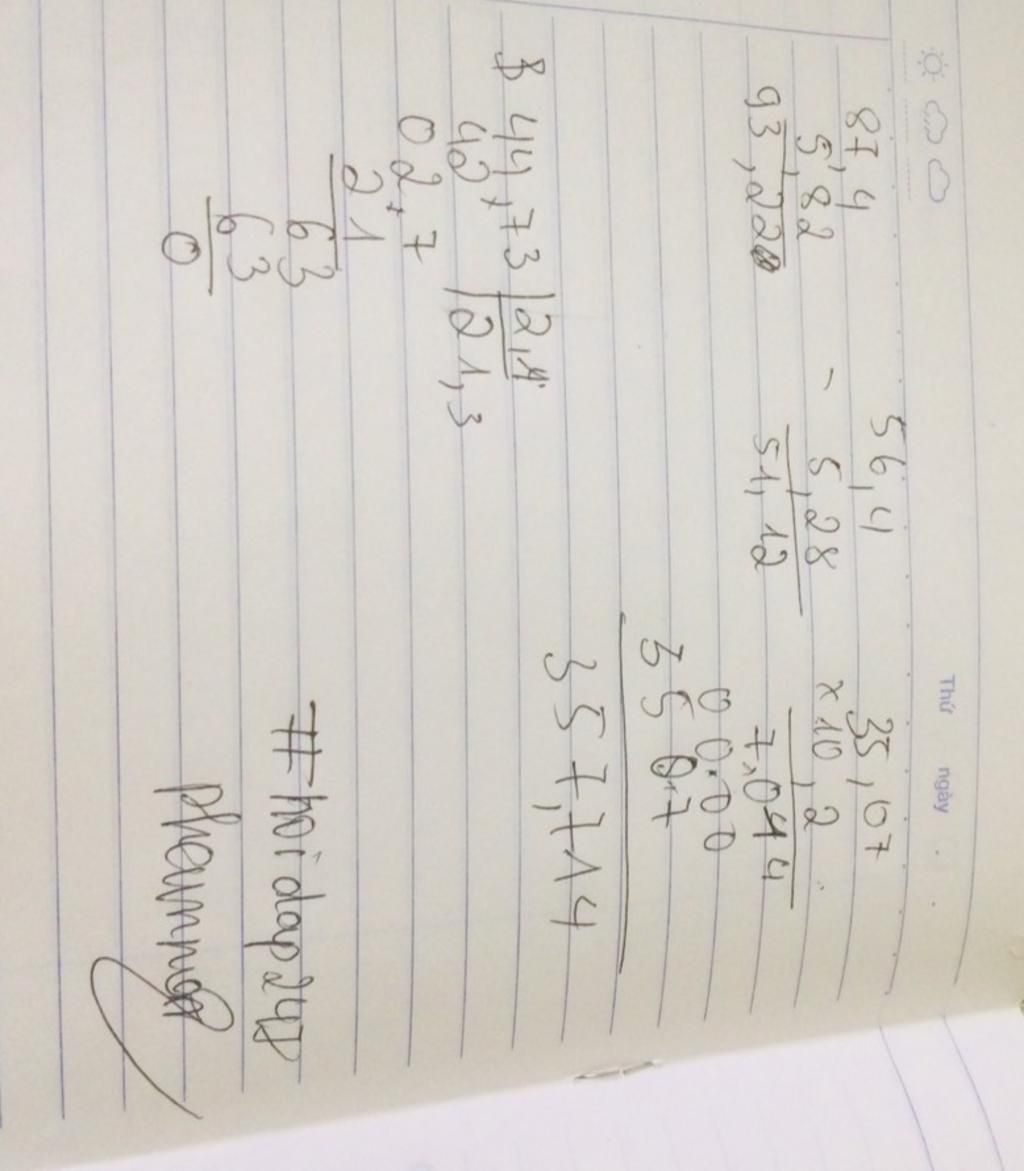 Thứ ngày
87,4
5,82
93,22
56,4
- 5,28
51,12
35,07
x 10,2
7,044
00.00
3507
357,714
44,73 | 2,1
42, | 21,3
02,7
21
63
63
0
#hoidap247